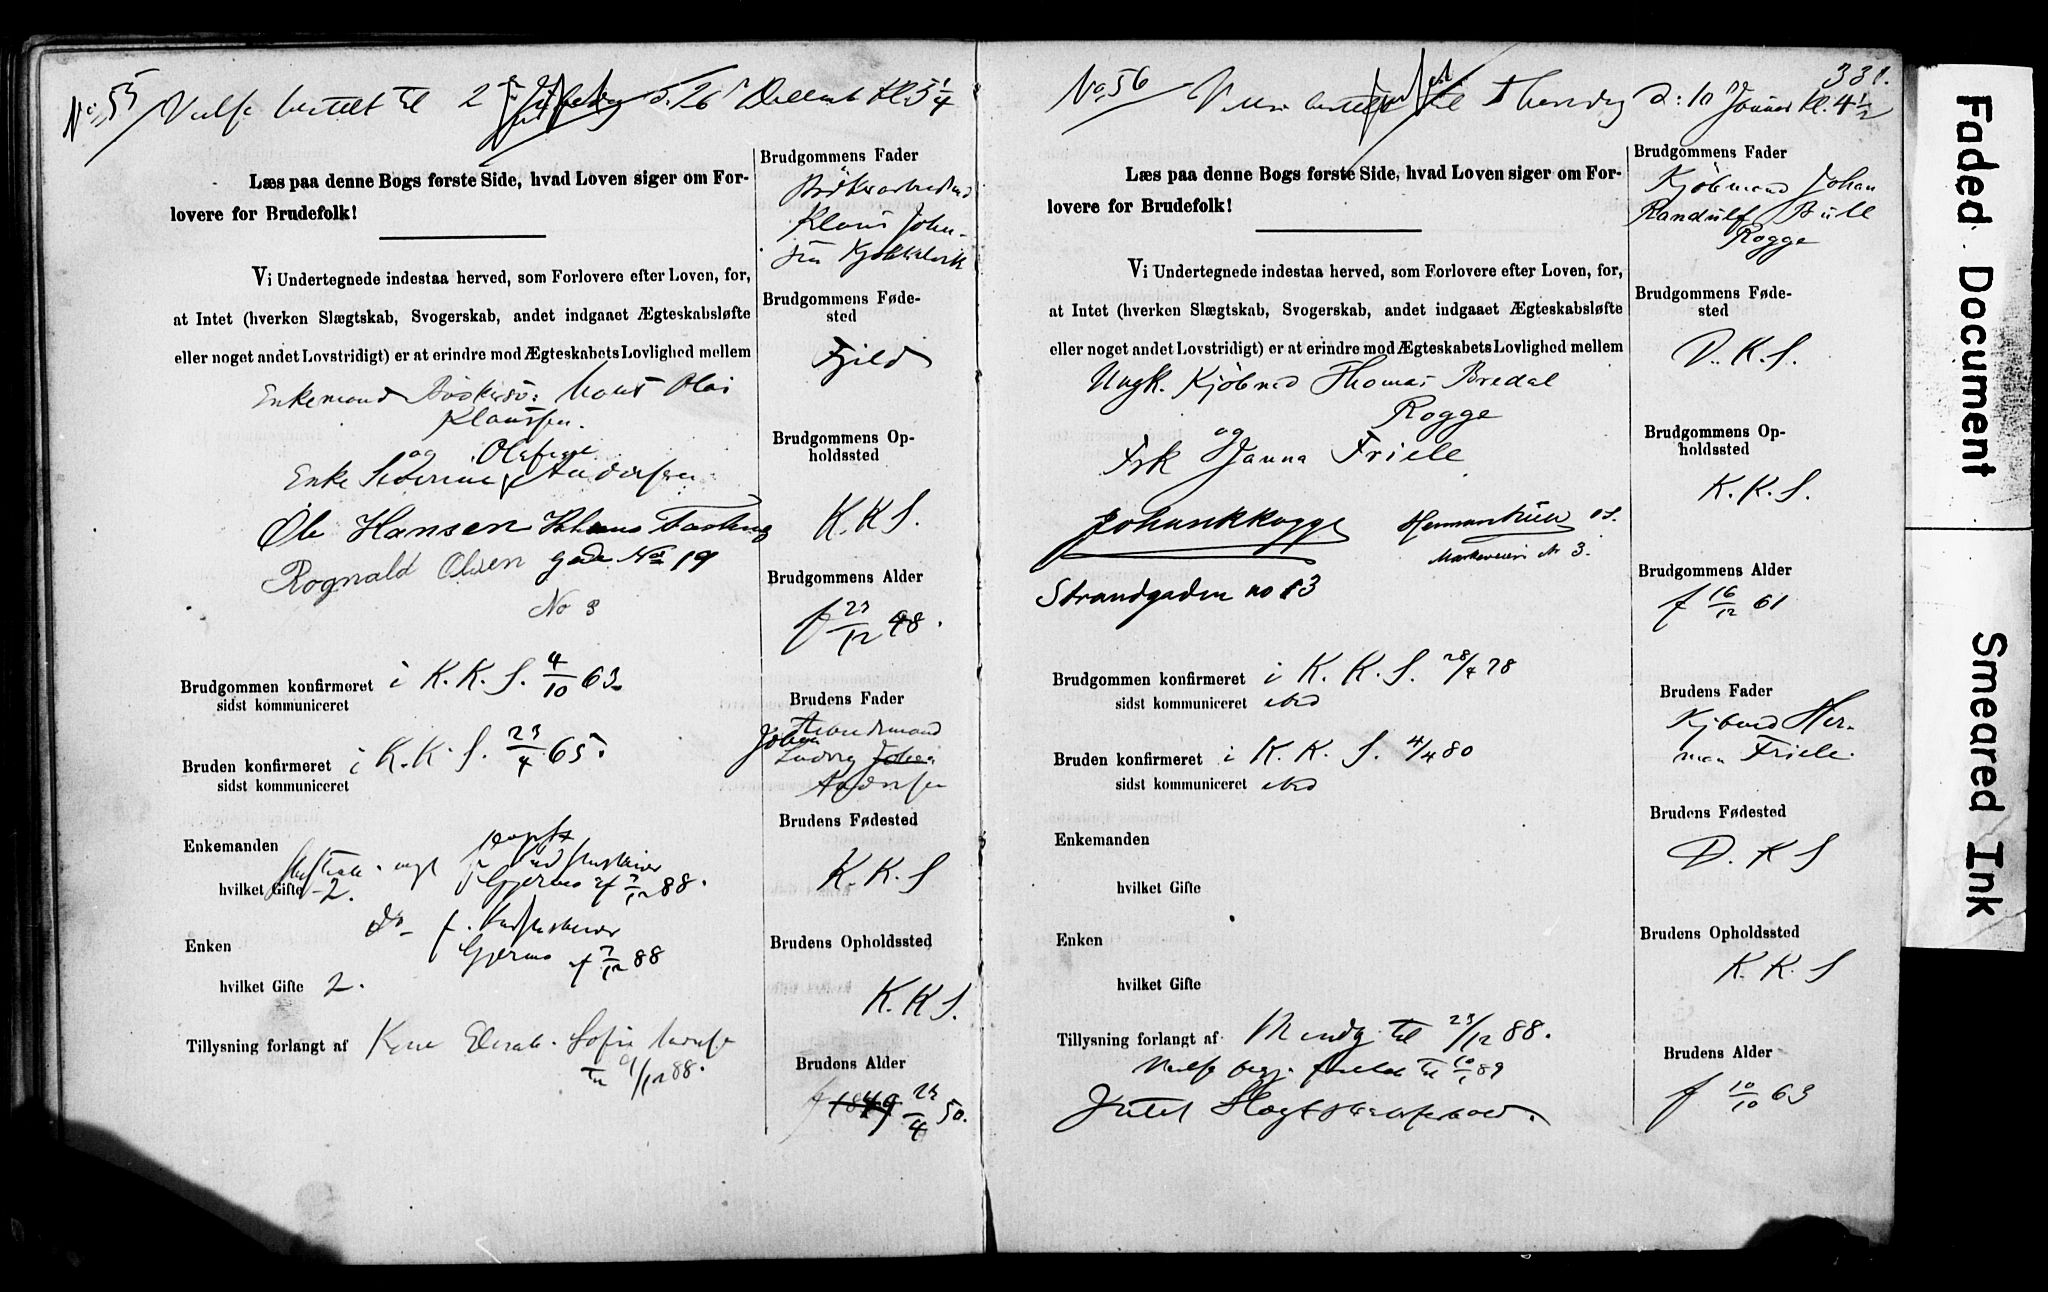 No. 55 Vielse bestilt til 2 Juledag d. 26 Decemb Kl. 3 1/4
Læs paa denne Bogs første Side, hvad Loven siger om For-
lovere for Brudefolk!
Vi Undertegnede indestaa herved, som Forlovere efter Loven, for,
at Intet (hverken Slægtskab, Svogerskab, andet indgaaet Ægteskabsløfte
eller noget andet Lovstridigt) er at erindre mod Ægteskabets Lovlighed mellem
Enkemand Hans Olai
Klaussen.
og Olefine
Enke Severine Andersen
Ole Hansen
Rognald Olsen gade No 19
No 3
Brudgommen konfirmeret i K. K. S. 4/10 63
sidst kommuniceret
Bruden konfirmeret i K. K. S. 23/4 65.
sidst kommuniceret
Enkemanden
af 7/12 88.
hvilket Gifte 2.
do f.
Enken
af 7/12 88
hvilket Gifte 2.
Tillysning forlangt af Sofie
til 9/12 88.
Brudgommens Fader
Klaus John-
sen
Brudgommens Føde-
sted
Fjeld
Brudgommens Op-
holdssted
K. K. S.
Brudgommens Alder
f 23/12 48.
Brudens Fader
Arbeidsmand
Johan
Ludvig Johan
Andersen
Brudens Fødested
K. K. S
Brudens Opholdssted
K. K. S.
Brudens Alder
f 1849 23/4 50.
331.
No. 56 til Thorsdag d: 10 Januar Kl. 4 1/2
Læs paa denne Bogs første Side, hvad Loven siger om For-
lovere for Brudefolk!
Vi Undertegnede indestaa herved, som Forlovere efter Loven, for,
at Intet (hverken Slægtskab, Svogerskab, andet indgaaet Ægteskabsløfte
eller noget andet Lovstridigt) er at erindre mod Ægteskabets Lovlighed mellem
Ungk. Kjøbmd Thomas Bredal
Rogge
og
Frk Janna Friele
Johan R Rogge Herman Friele
Markeveien Nr 3.
Strandgaden no 83
Brudgommen konfirmeret i K. K. S. 28/4 78
sidst kommuniceret ibid
Bruden konfirmeret i K. K. S. 4/4 80
sidst kommuniceret ibid
Enkemanden
hvilket Gifte
Enken
hvilket Gifte
Tillysning forlangt af Mundtg. til 23/12 88.
Vielse til 10/1 89
Intet Slægtskabsforhold.
Brudgommens Fader
Kjøbmand Johan
Randulf Bull
Rogge
Brudgommens Føde-
sted
D. K. S.
Brudgommens Op-
holdssted
K. K. S.
Brudgommens Alder
f 16/12 61
Brudens Fader
Kjøbmd Her-
man Friele.
Brudens Fødested
D. K S
Brudens Opholdssted
K. K. S
Brudens Alder
f 10/10 63
Faded Document
Smeared Ink